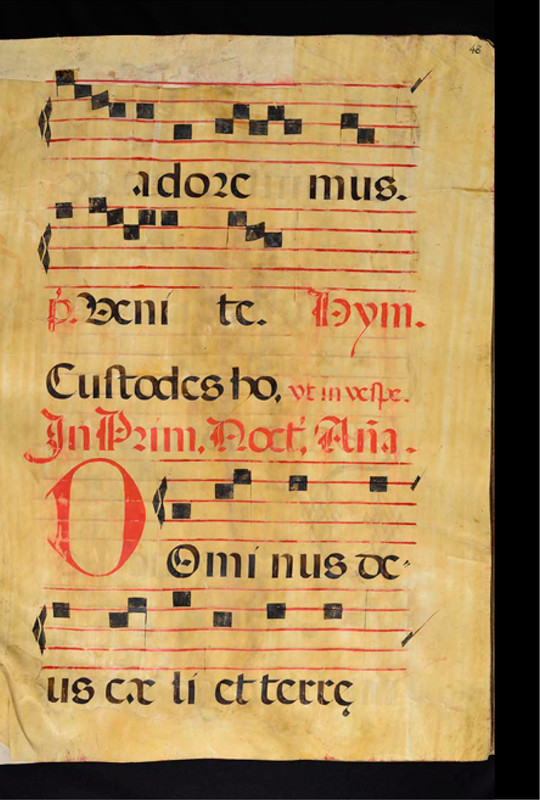 48
adore mus.
p. Veni te. Hym.
Custodes ho, vt in vespe.
In Prim. Noct. Aña.
DOmi nus de-
us cæ li et terrę